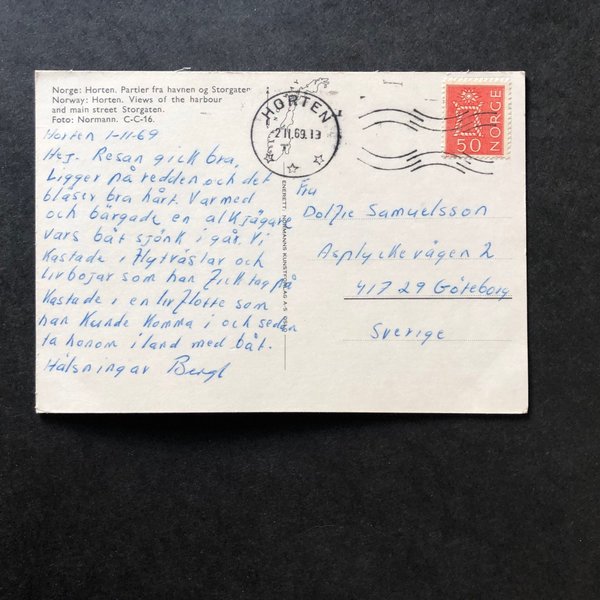 Norge: Horten. Partier fra havnen og Storgaten
Norway: Horten. Views of the harbour
and main street Storgaten.
Foto: Normann. C-C-16.
Horten 1-11-69
Hej. Resan gick bra,
Ligger på redden och det
blåser bra hårt. Var med
och bärgade en alkjägare
vars båt sjönk i går. Vi
Kastade i flytväslar och
livbojar som han fick tag på
Kastade i en livflotte som
han Kunde Komma i och sedan
ta honom i land med båt.
Hälsningar Bengt
HORTEN
2 11.69.13
NORGE
50
ENERETT: NORMANNS KUNSTFORLAG A-S OSLO
Fru
Dolfie Samuelsson
Asplyckevägen 2
417 29 Göteborg
Sverige